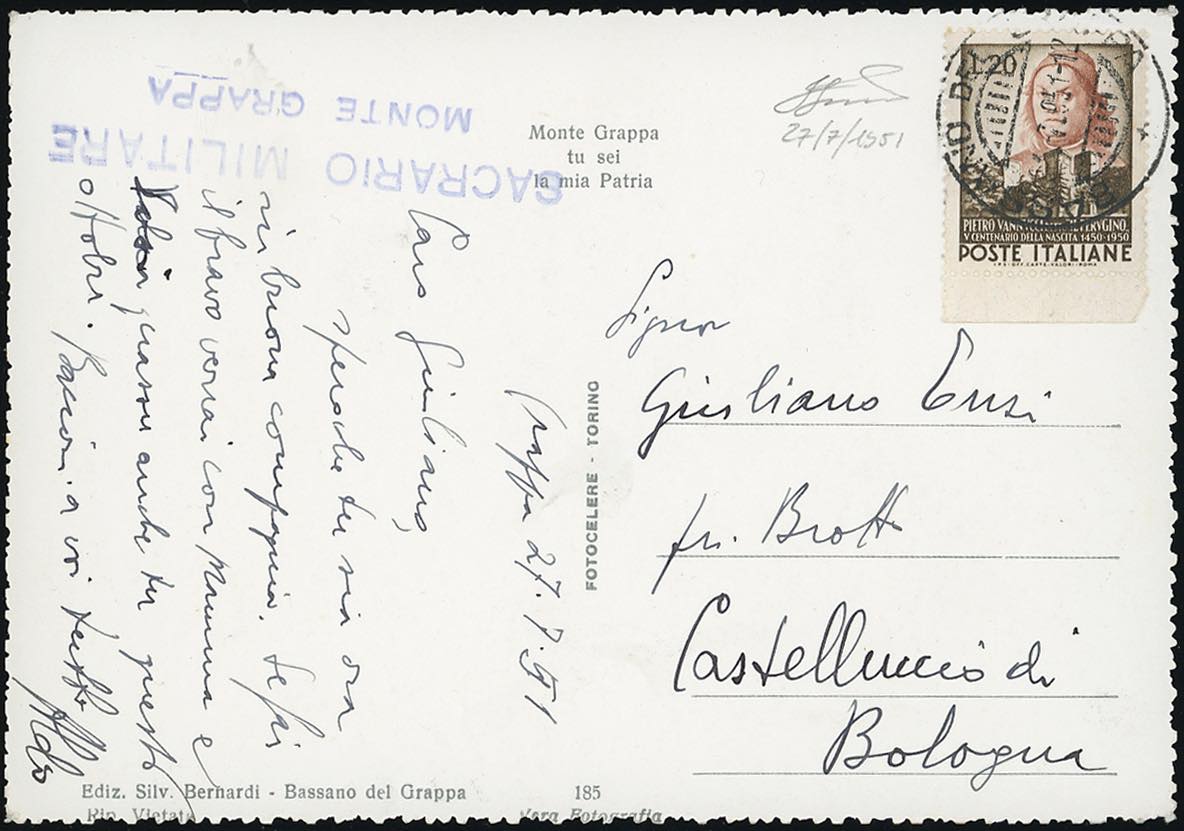 SACRARIO MILITARE
MONTE GRAPPA
Monte Grappa
tu sei
la mia Patria
27/7/1951
L.20
PIETRO VANNUCCI IL PERUGINO
V CENTENARIO DELLA NASCITA 1450-1950
POSTE ITALIANE
I.P.S. OFF. CARTE-VALORI-ROMA
Grappa 27.7.51
Caro Giuliano,
spero che tu sia ora
in buona compagnia. Se fai
il bravo verrai con Mamma e
quassù anche tu questo
ottobre. Bacioni a voi tutti
Aldo
FOTOCELERE - TORINO
Signor
Giuliano
fr. Brotti
Castelluccio di
Bologna
Ediz. Silv. Bernardi - Bassano del Grappa
185
Rip. Vietata
Vera Fotografia